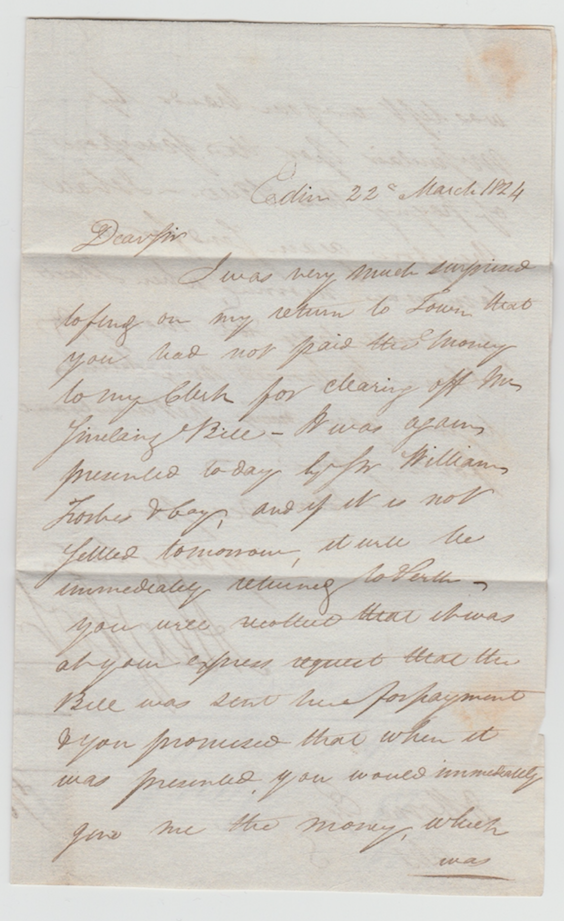 Edinr 22d March 1824
Dear Sir
I was very much surprised
to find on my return to Town that
you had not paid the Money
to my Clerk for clearing off Mr
Bill - It was again
presented to day by Sir William
Forbes & Coy, and if it is not
settled tomorrow, it will be
immediately returned to Perth -
you will recollect that it was
at your express request that the
Bill was sent here for payment
& you promised that when it
was presented, you would immediately
give me the money, which
was